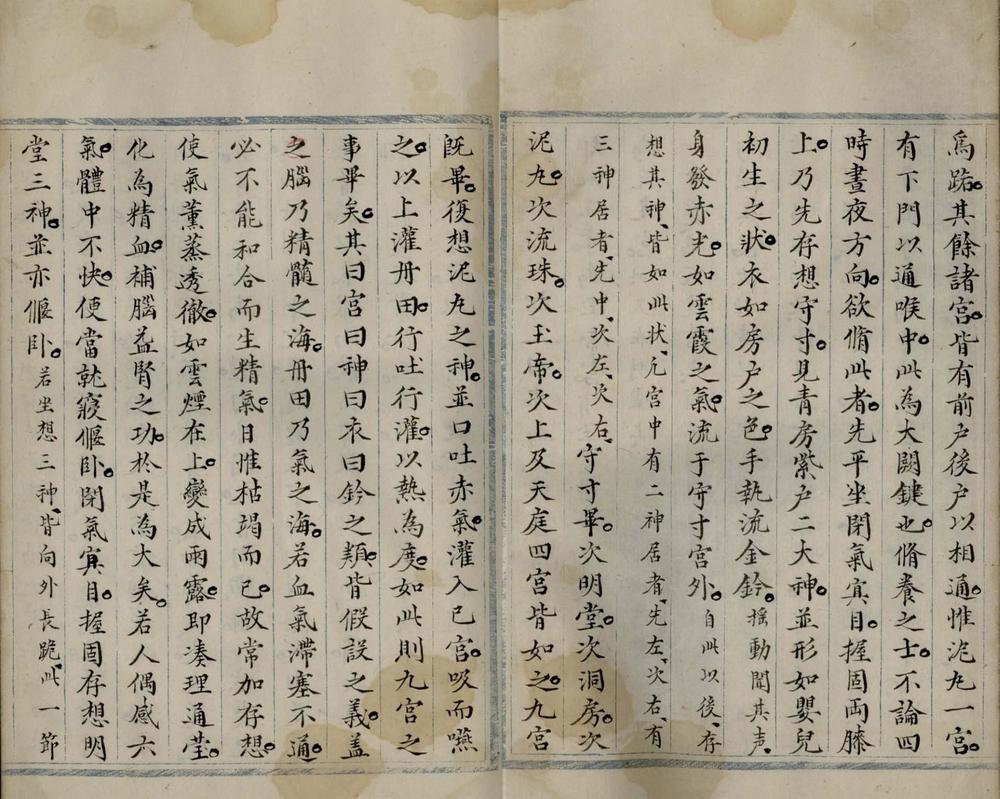 為路。其餘諸宮。皆有前户後户以相通。惟泥丸一宮。
有下門以通喉中。此為大關鍵也。脩養之士。不論四
時晝夜方向。欲脩此者。先平坐閉氣寘目。握固両膝
上。乃先存想守寸。見青房紫户二大神。並形如嬰兒
初生之狀。衣如房户之色。手執流金鈴。揺動聞其声、
身發赤光。如雲霞之氣。流于守寸宮外。自此以後、存
想其神、皆如此状、凢宮中有二神居者、先左、次右、有
三神居者、先中、次左、次右、守寸畢。次明堂。次洞房。次
泥丸。次流珠。次玉帝。次上及天庭四宮皆如之。九宮
既畢。復想泥丸之神。並口吐赤氣。灌入已宮。吸而嚥
之。以上灌丹田。行吐行灌。以熱為度。如此則九宮之
事畢矣。其曰宮曰神曰衣曰鈴之類。皆假設之義。盖
之腦乃精髓之海。丹田乃氣之海。若血氣滯塞不通。
必不能和合而生精氣。日惟枯竭而已。故常加存想。
使氣薰蒸透徹。如雲煙在上。變成雨露。即凑理通瑩。
化為精血。補腦益腎之功。於是為大矣。若人偶感六
氣。體中不快。便當就寢偃卧。閉氣寘目。握固存想明
堂三神。並亦偃卧。若坐想三神、皆向外長跪、此一節